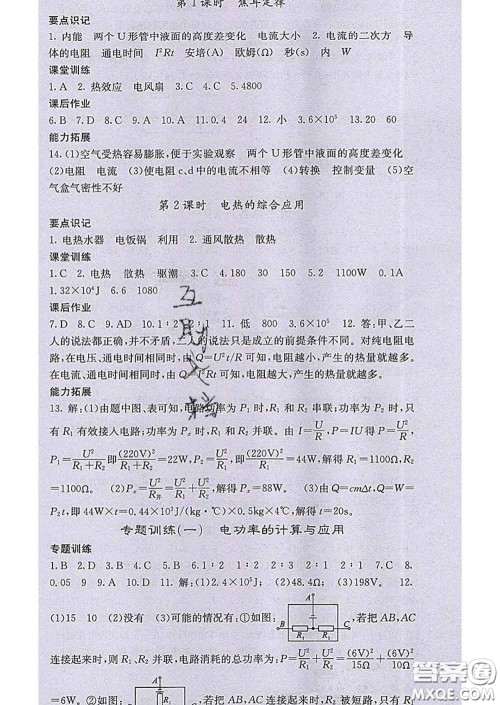 第1课时 焦耳定律
要点识记
1. 内能 两个U形管中液面的高度差变化 电流大小 2. 电流的二次方 导
体的电阻 通电时间 I²Rt 安培(A) 欧姆(Ω) 秒(s) 内 W
课堂训练
1. A 2. 热效应 电风扇 3. C 4. C 5. 4800
课后作业
6. B 7. D 8. C 9. A 10. A 11. 0.4 24 12. 小 3.6×10⁵ 13. 20 60
能力拓展
14. (1)空气受热容易膨胀,便于实验观察 两个U形管中液面的高度差变化
(2)电阻 电流 (3)使电阻c、d中的电流不相等 (4)转换 控制变量 (5)空
气盒气密性不好
第2课时 电热的综合应用
要点识记
1. 电热水器 电饭锅 利用 2. 通风散热 散热
课堂训练
1. C 2. 电热 散热 驱潮 3. C 4. 180 30 150 5. 2 1100W 0.1A
1.32×10⁴J 6. 6 1080
课后作业
7. D 8. C 9. AD 10. 1∶2 2∶1 11. 低 800 3.6×10⁵ 12. 答:甲、乙二
人的说法都正确,并不矛盾,只是他们的说法是成立的前提条件不同。对纯电阻电
路,在电压、通电时间相同时,由Q=U²t/R可知,电阻越小,产生的热量就越多。
在电流、通电时间相同时,由Q=I²Rt可知,电阻越大,产生的热量就越多。
能力拓展
13. 解:(1)由题中图、表可知,电路功率为P₁时,R₁和R₂串联;功率为P₂时,只
有R₁有效接入电路;功率为Pₓ时,R₁和R₂并联。由I=U/R,P=IU得P=U²/R,
P₁=U²/(R₁+R₂),即(220V)²/(R₁+R₂)=22W,P₂=U²/R₁,即(220V)²/R₁=44W,解得R₁=1100Ω,R₂=
1100Ω。(2)Pₓ=U²/R并=U²/R₁+U²/R₂,解得Pₓ=88W。(3)由Q=cmΔt,Q=W=
Pt,即44W×t=0.44×10³J/(kg·℃)×0.5kg×4℃,解得t=20s。
专题训练(一) 电功率的计算与应用
专题训练
1. B 2. D 3. C 4. B 5. B 6. 1∶2 2∶1 2∶1 1∶2 7. C 8.
0.05 9 9. A 10. D 11. 解:(1)2.4×10⁵J;(2)48.4Ω;(3)198V。 12.
(1)15 10 (2)没有 (3)可能的情况有:①如图:,若把AB,AC
A B C R₁ R₂
连接起来时,则R₁、R₂并联,电路消耗的总功率为:P=U²/R₁+U²/R₂=(6V)²/15Ω+(6V)²/10Ω
=6W。②如图:,若把AB,AC连接起来时,R₂被短路,只有R₁
互助文档
答案圈
MXQE.COM